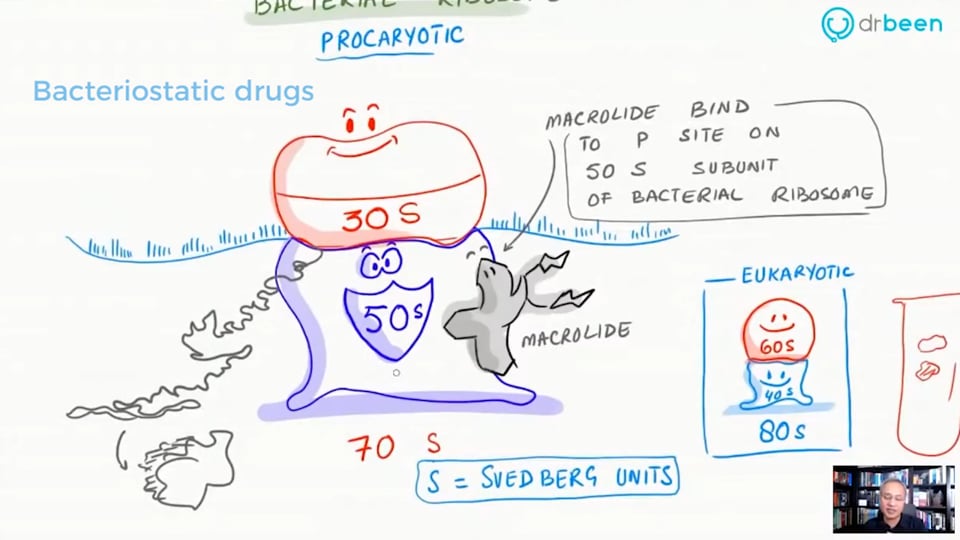 BACTERIAL RIBOSOME
drbeen
PROCARYOTIC
Bacteriostatic drugs
MACROLIDE BIND
TO P SITE ON
50 S SUBUNIT
OF BACTERIAL RIBOSOME
30 S
50s
MACROLIDE
EUKARYOTIC
60s
40s
80s
70 S
S = SVEDBERG UNITS